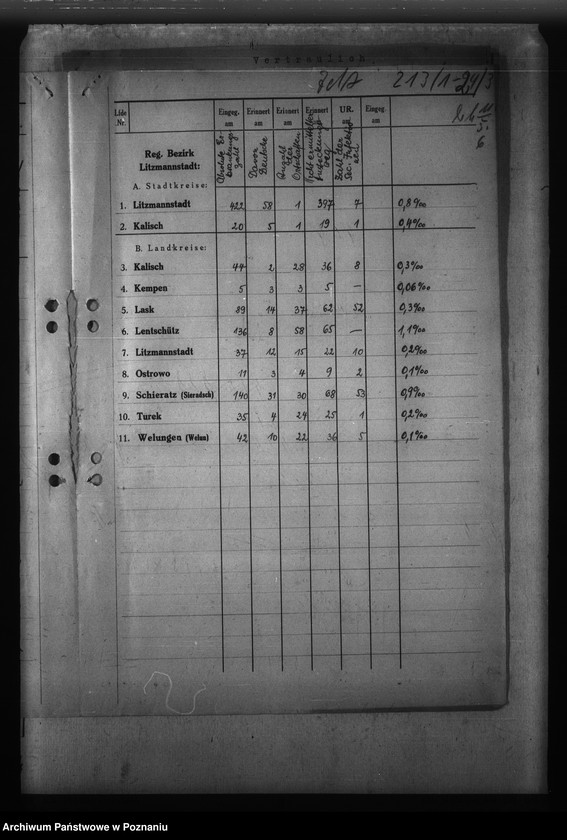 Vertraulich.
213/1-24/3
Lfde Nr. Eingeg. am Erinnert am Erinnert am Erinnert am UR. am Eingeg. am
Reg. Bezirk Litzmannstadt: Absolute Er- krankungs- zahl Davon Deutsche Anzahl der Ortschaften Nicht ermittelter Ansteckungs- weg Zahl der
A. Stadtkreise:
1. Litzmannstadt 422 58 1 397 7 0,8‰
2. Kalisch 20 5 1 19 1 0,4‰
B. Landkreise:
3. Kalisch 44 2 28 36 8 0,3‰
4. Kempen 5 3 3 5 — 0,06‰
5. Lask 89 14 37 62 52 0,3‰
6. Lentschütz 136 8 58 65 — 1,1‰
7. Litzmannstadt 37 12 15 22 10 0,2‰
8. Ostrowo 11 3 4 9 2 0,1‰
9. Schieratz (Sieradsch) 140 31 30 68 53 0,9‰
10. Turek 35 4 24 25 1 0,2‰
11. Welungen (Welun) 42 10 22 36 5 0,1‰
Archiwum Państwowe w Poznaniu